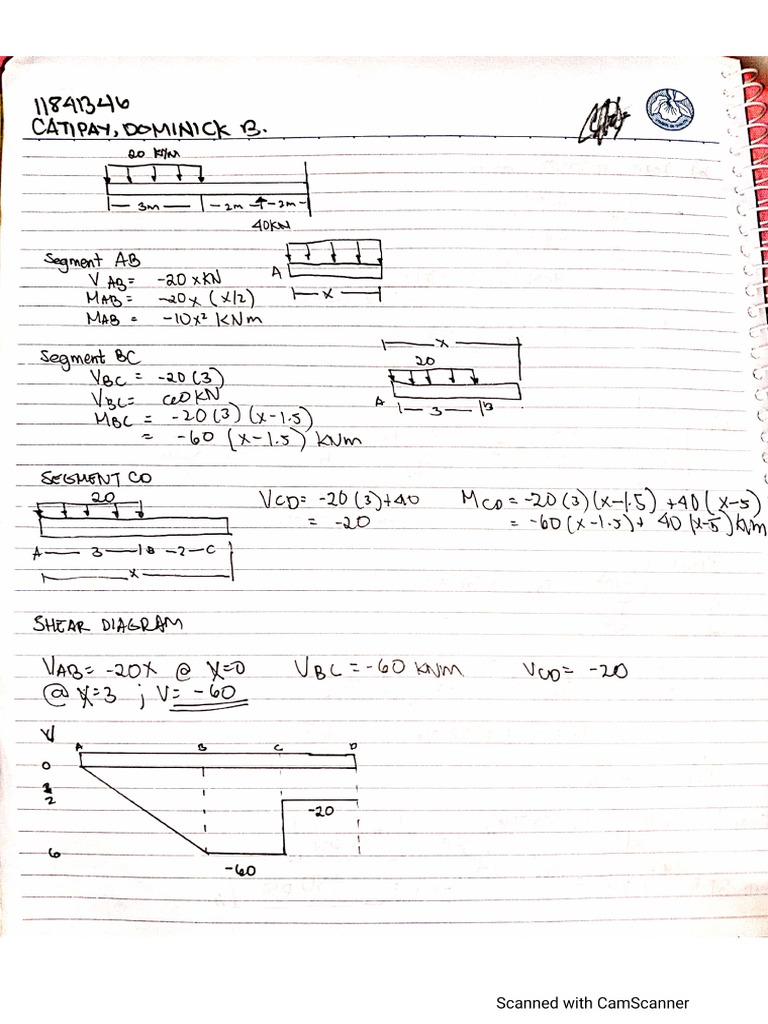 11841346
CATIPAY, DOMINICK B.
20 KN/M
3m 2m 2m
40KN
Segment AB
V AB = -20 x KN
MAB = -20x (x/2)
MAB = -10x² KNm
A
x
Segment BC
VBC = -20(3)
VBC = 60 KN
MBC = -20(3)(x-1.5)
= -60 (x-1.5) KNm
x
20
A 3 B
SEGMENT CD
20
A 3 B 2 C
x
VCD = -20(3)+40
= -20
MCD = -20(3)(x-1.5) +40(x-5)
= -60(x-1.5)+ 40(x-5) KNm
SHEAR DIAGRAM
VAB = -20x @ x=0 VBC = -60 KNm VCD = -20
@ x=3 ; V= -60
V
A B C D
0
2
-20
6
-60
Scanned with CamScanner